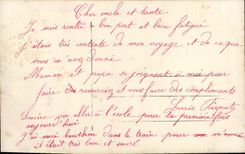 Cher oncle et tante
Je suis rentré à bon port et bien fatigué
J'étais très contente de mon voyage et de ce que
vous m'avez donné
Maman et papa se joignent à moi pour
faire des et vous faire des compliments
Lucie
Lucien va aller à l'école pour la première fois
aujourd'hui
J'ai sucé dans le train pour
il était très bon et sucré